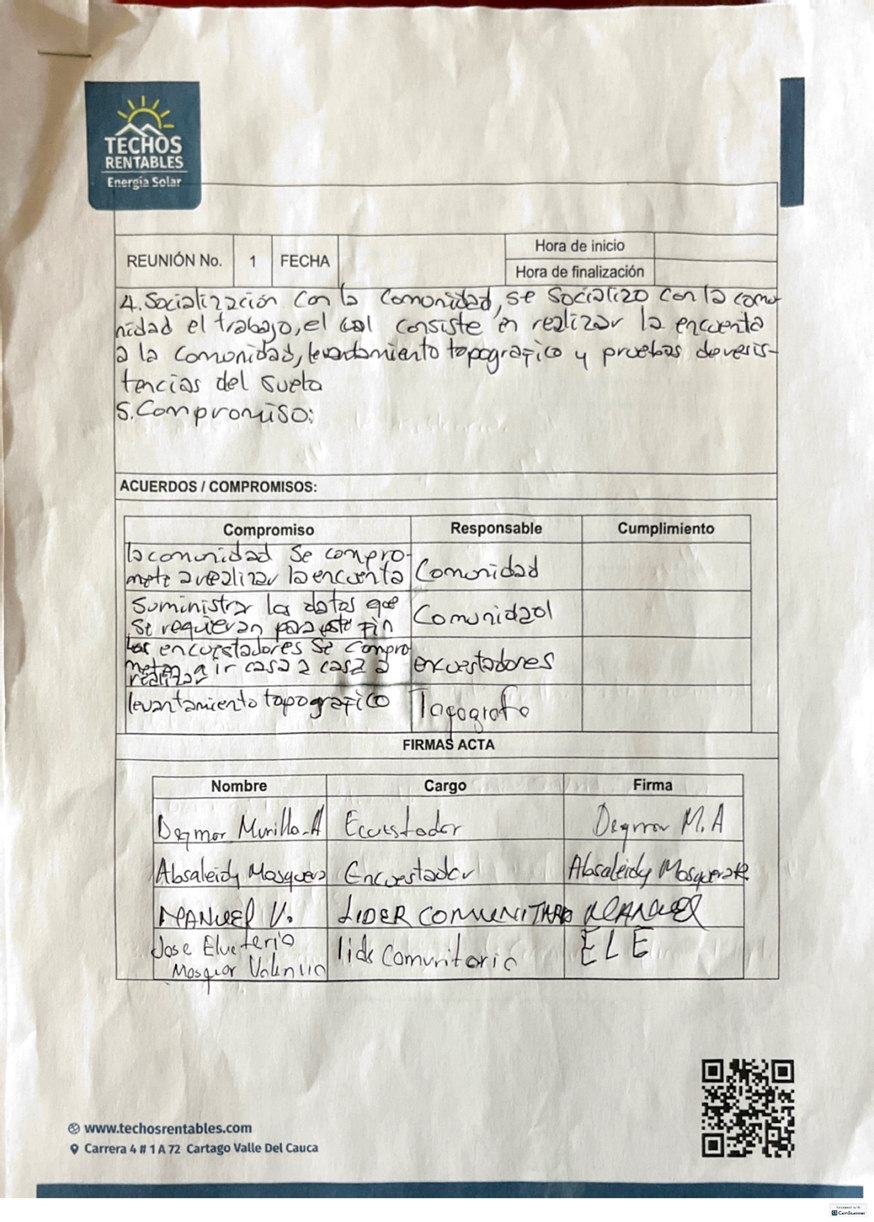 TECHOS
RENTABLES
Energía Solar
REUNIÓN No. 1 FECHA Hora de inicio
Hora de finalización
4. Socialización con la comunidad, se socializo con la comu-
nidad el trabajo, el cual consiste en realizar la encuenta
a la comunidad, levantamiento topografico y pruebas de resis-
tencias del suelo
5. Compromiso:
ACUERDOS / COMPROMISOS:
Compromiso Responsable Cumplimiento
la comunidad se compro-
mete a realizar la encuenta Comunidad
Suministrar los datos que
se requieran para este fin Comunidad
los encuestadores se compro
meten a ir casa a casa a
realizar encuestadores
levantamiento topografico Topografo
FIRMAS ACTA
Nombre Cargo Firma
Murillo A Ecuestador M.A
Absaleidy Mosquera Encuestador Absaleidy
MANUEL V. LIDER COMUNITARIO MANUEL
Jose Eleuterio
Valencia lide Comunitario ELE
www.techosrentables.com
Carrera 4 # 1 A 72 Cartago Valle Del Cauca
CamScanner